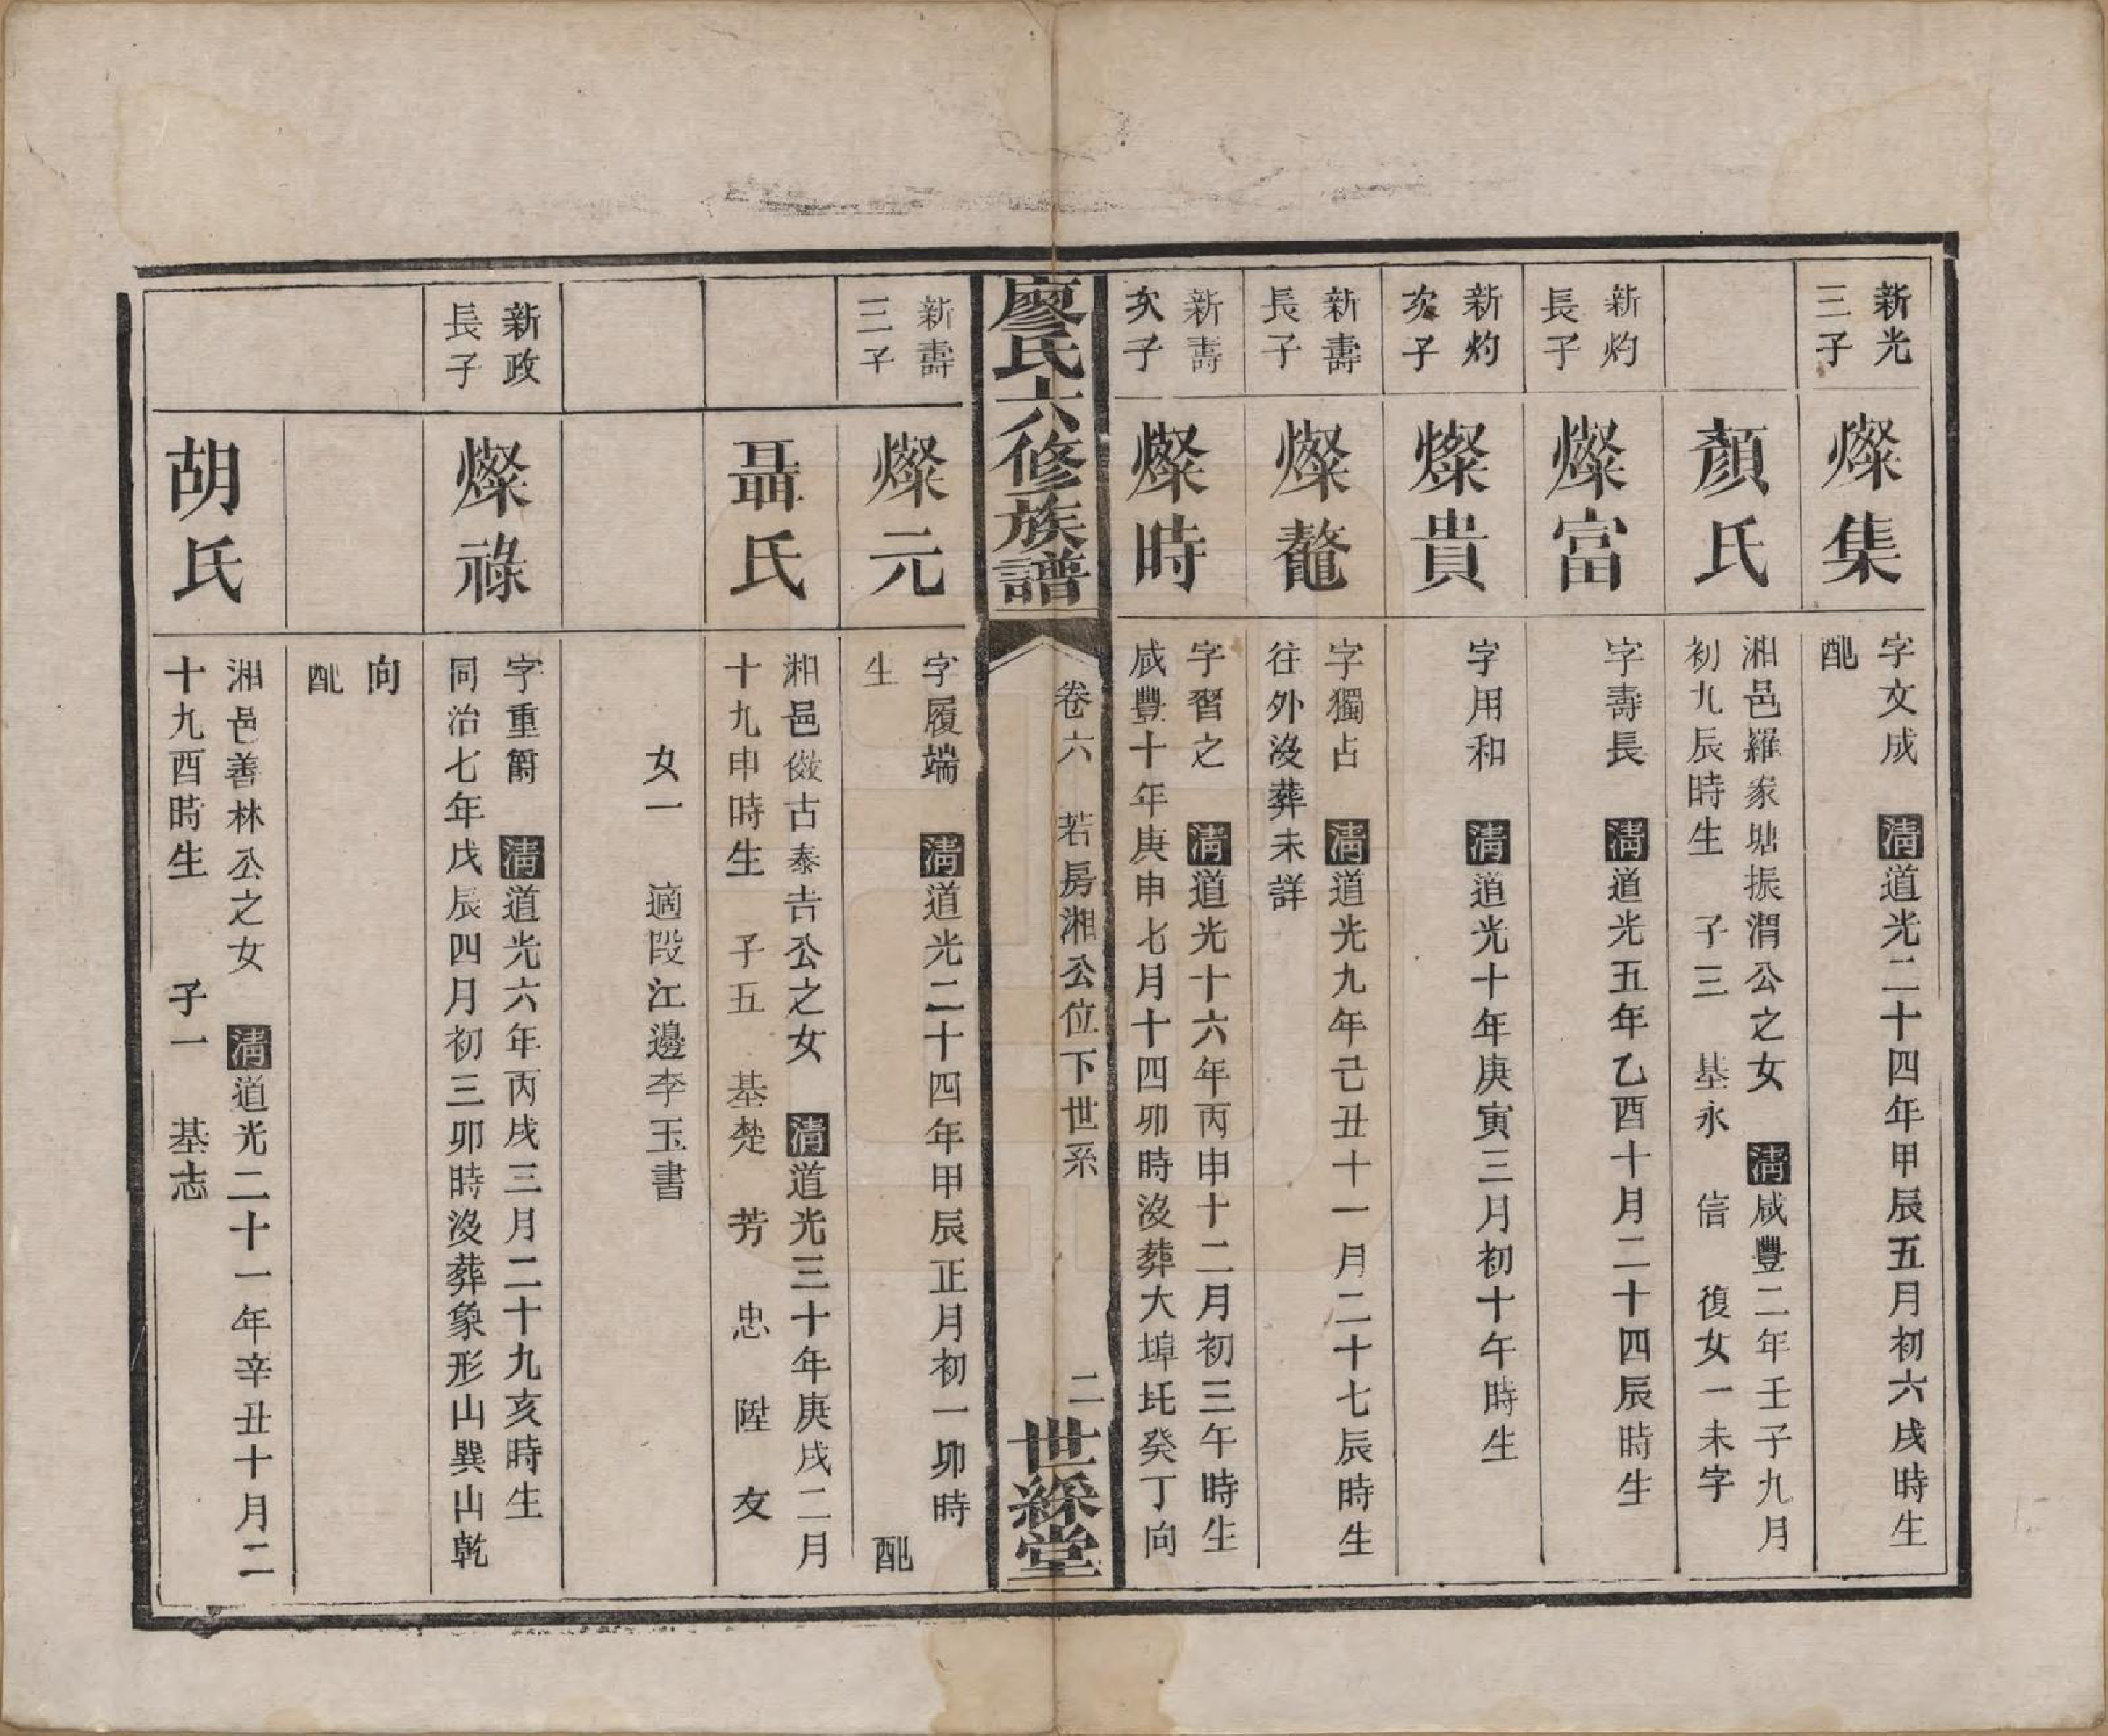 新光
三子
燦集
字文成　清道光二十四年甲辰五月初六戌時生
配
顏氏
湘邑羅家塘振渭公之女　清咸豐二年壬子九月
初九辰時生　子三　基永　信　復女一未字
新灼
長子
燦富
字壽長　清道光五年乙酉十月二十四辰時生
新灼
次子
燦貴
字用和　清道光十年庚寅三月初十午時生
新壽
長子
燦鼇
字獨占　清道光九年己丑十一月二十七辰時生
往外沒葬未詳
新壽
次子
燦時
字習之　清道光十六年丙申十二月初三午時生
咸豐十年庚申七月十四卯時沒葬大埠圫癸丁向
廖氏六修族譜
卷六　若房湘公位下世系
二
世綵堂
新壽
三子
燦元
字履端　清道光二十四年甲辰正月初一卯時
生　配
聶氏
湘邑倣古泰吉公之女　清道光三十年庚戌二月
十九申時生　子五　基楚　芳　忠　陞　友
女一　適段江邊李玉書
新政
長子
燦祿
字重爵　清道光六年丙戌三月二十九亥時生
同治七年戊辰四月初三卯時沒葬象形山巽山乾
向
配
胡氏
湘邑善林公之女　清道光二十一年辛丑十月二
十九酉時生　子一　基志